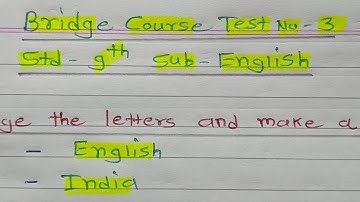 Bridge Course Test No - 3
Std - 9th Sub - English
ge the letters and make a
- English
- India